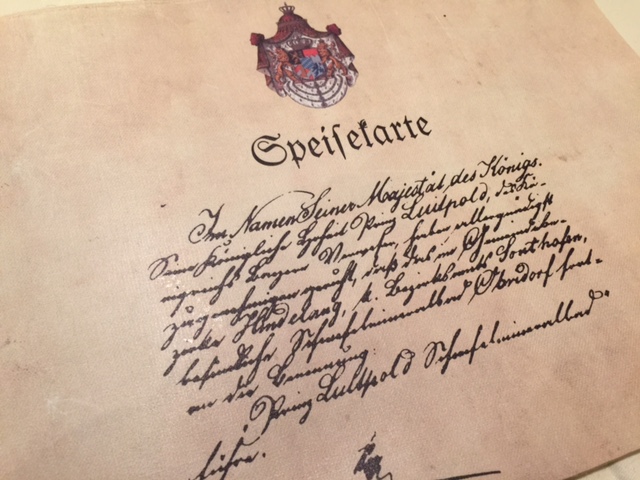 Speiſekarte
Im Namen Seiner Majestät des Königs.
Seine Königliche Hoheit Prinz Luitpold, des Kö-
nigreichs Bayern Verweser, haben allergnädigst
zu genehmigen geruht, daß das im Gemeindebe-
zirke Hindelang, k. Bezirksamts Sonthofen,
befindliche Schwefelmineralbad Oberdorf fort-
an die Benennung
„Prinz Luitpold Schwefelmineralbad“
führe.